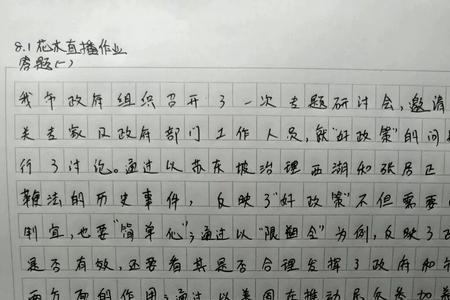 8.1花木直播作业
答题(一)
我市政府组织召开了一次专题研讨会,邀请
关专家及政府部门工作人员,就"好政策"的问
行了讨论。通过以苏东坡治理西湖和张居正
鞭法的历史事件,反映了"好政策"不但需要
制宜,也要"简单化";通过以"限塑令"为例,反映了
是否有效,还要看其是否合理发挥了政府和
两方面的作用;通过以美国在推动民众参加养